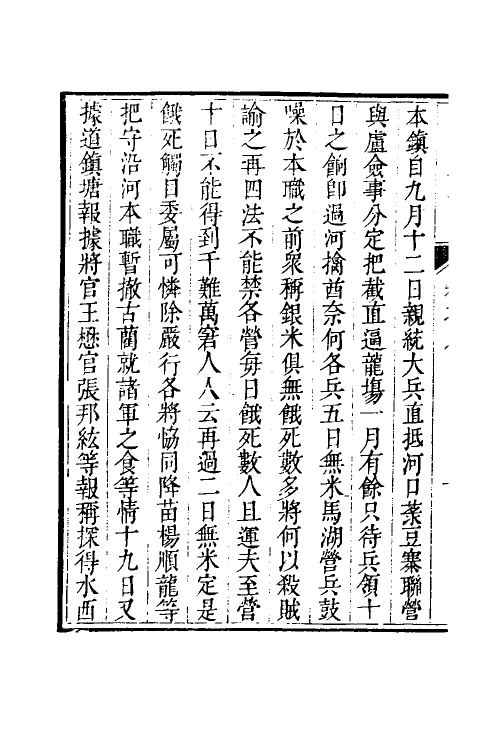 本鎮自九月十二日親統大兵直抵河口菉豆寨聯營
與盧僉事分定把截直逼龍塲一月有餘只待兵領十
日之餉卽過河擒酋奈何各兵五日無米馬湖營兵鼓
噪於本職之前衆稱銀米俱無餓死數多將何以殺賊
諭之再四法不能禁各營每日餓死數人且運夫至營
十日不能得到千難萬窘人人云再過二日無米定是
餓死觸目委屬可憐除嚴行各將恊同降苗楊順龍等
把守沿河本職暫撤古藺就諸軍之食等情十九日又
據道鎮塘報據將官王懋官張邦紘等報稱探得水西